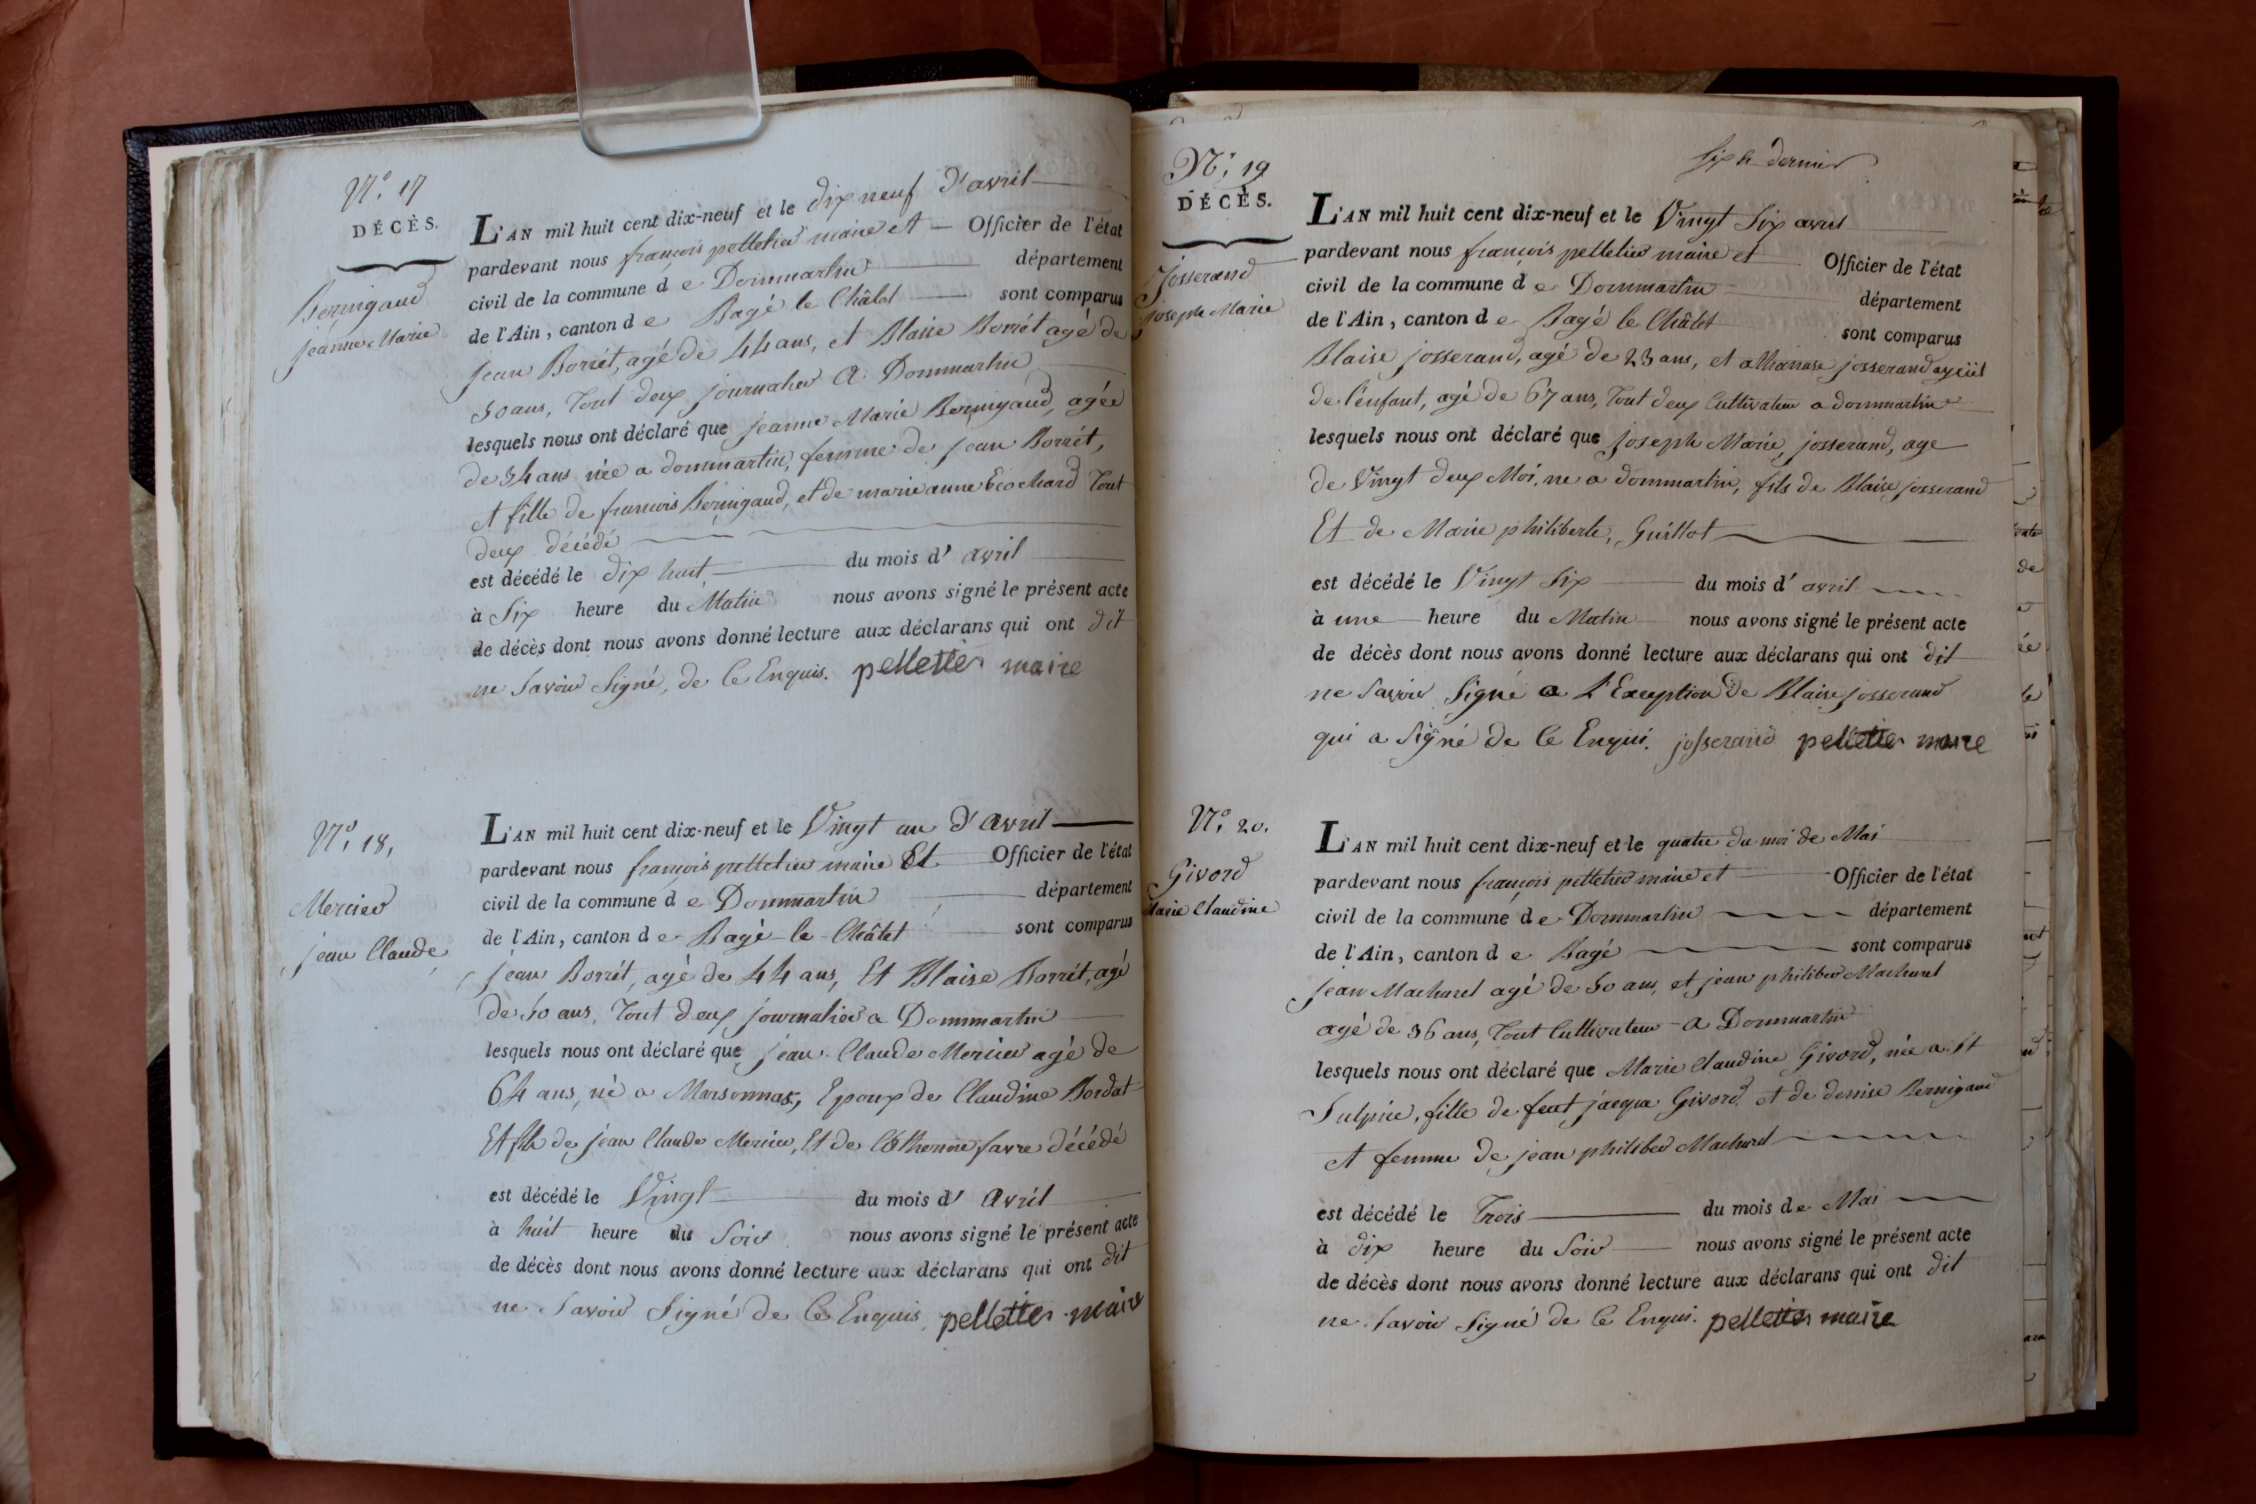 N.° 17
DÉCÈS.
Bernigaud
jeanne Marie
L'AN mil huit cent dix-neuf et le dix neuf d'avril
pardevant nous françois pelletier maire et Officier de l'état
civil de la commune de Dommartin département
de l'Ain, canton de Bagé le Châtel sont comparus
jean Borrét, agé de 44 ans, et Blaise Borrét agé de
50 ans, Tout deux journalier a Dommartin
lesquels nous ont déclaré que jeanne Marie Bernigaud, agée
de 34 ans née a dommartin, femme de jean Borrét,
et fille de francois Bernigaud, et de marie anne Ecochard Tout
deux décédé
est décédé le dix huit du mois d'avril
à Six heure du Matin nous avons signé le présent acte
de décès dont nous avons donné lecture aux déclarans qui ont dit
ne Savoir Signé, de Ce Enquis. pelletier maire
N.° 18,
Mercier
jean Claude
L'AN mil huit cent dix-neuf et le Vingt un d'avril
pardevant nous françois pelletier maire Et Officier de l'état
civil de la commune de Dommartin département
de l'Ain, canton de Bagé le Châtel sont comparus
jean Borrét, agé de 44 ans, Et Blaise Borrét, agé
de 50 ans, Tout deux journalier a Dommartin
lesquels nous ont déclaré que jean Claude Mercier agé de
64 ans, né a Marsonnas, Epoux de Claudine Bordat
Et fils de jean Claude Mercier, Et de favre décédé
est décédé le Vingt du mois d'Avril
à huit heure du Soir nous avons signé le présent acte
de décès dont nous avons donné lecture aux déclarans qui ont dit
ne Savoir Signé de Ce Enquis, pelletier maire
Six & dernier
N.° 19
DÉCÈS.
Josserand
joseph Marie
L'AN mil huit cent dix-neuf et le Vingt Six avril
pardevant nous françois pelletier maire et Officier de l'état
civil de la commune de Dommartin département
de l'Ain, canton de Bagé le Châtel sont comparus
Blaise josserand, agé de 23 ans, et athanase josserand ayeul
de l'enfant, agé de 67 ans, Tout deux Cultivateur a dommartin
lesquels nous ont déclaré que joseph Marie, josserand, age
de Vingt deux Moi, ne a dommartin, fils de Blaise josserand
Et de Marie philiberte, Guillot
est décédé le Vingt Six du mois d'avril
à une heure du Matin nous avons signé le présent acte
de décès dont nous avons donné lecture aux déclarans qui ont dit
ne Savoir Signé a l'Exception de Blaise josserand
qui a Signé de Ce Enqui. josserand pelletier maire
N.° 20.
Givord
Marie Claudine
L'AN mil huit cent dix-neuf et le quatre du moi de Mai
pardevant nous françois pelletier maire et Officier de l'état
civil de la commune de Dommartin département
de l'Ain, canton de Bagé sont comparus
jean Machurel agé de 50 ans, et jean philiber Machurel
agé de 36 ans, Tout Cultivateur a Dommartin
lesquels nous ont déclaré que Marie Claudine Givord, née a St
Sulpice, fille de feut jacque Givord et de denise Bernigaud
et femme de jean philiber Machurel
est décédé le Trois du mois de Mai
à dix heure du Soir nous avons signé le présent acte
de décès dont nous avons donné lecture aux déclarans qui ont dit
ne Savoir Signé de Ce Enqui. pelletier maire